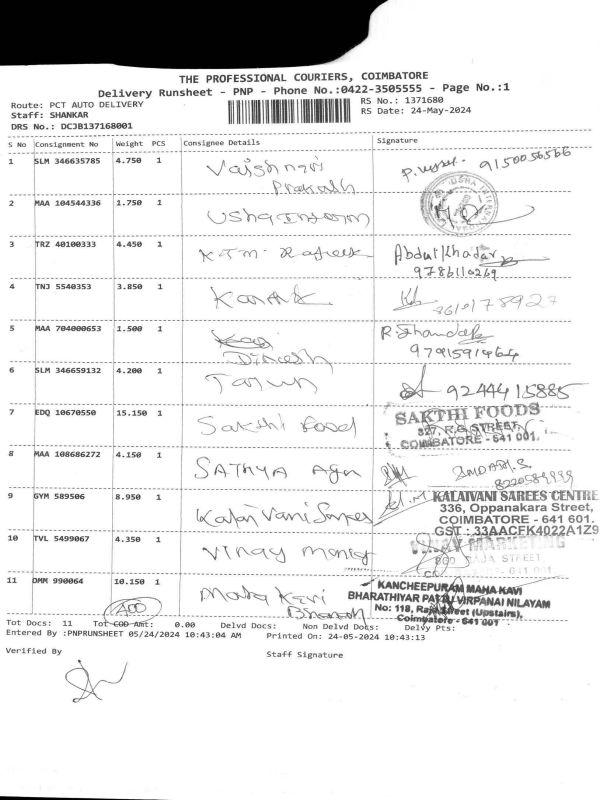 THE PROFESSIONAL COURIERS, COIMBATORE
Delivery Runsheet - PNP - Phone No.:0422-3505555 - Page No.:1
Route: PCT AUTO DELIVERY RS No.: 1371680
Staff: SHANKAR RS Date: 24-May-2024
DRS No.: DCJB137168001
S No Consignment No Weight PCS Consignee Details Signature
1 SLM 346635785 4.750 1 Vaishnavi 9150056566
Prakash
2 MAA 104544336 1.750 1 Usha
3 TRZ 40100333 4.450 1 K.T.M. Rafeek Abdul Khadar
9786110269
4 TNJ 5540353 3.850 1
5 MAA 704000653 1.500 1
Dinesh 9791591464
6 SLM 346659132 4.200 1 Tarun 9244415885
7 EDQ 10670550 15.150 1 Sakthi Food SAKTHI FOODS
327, R.G. STREET,
COIMBATORE - 641 001.
8 MAA 108686272 4.150 1 SATHYA Agn
9 GYM 589506 8.950 1 Kalai Vani Sarees KALAIVANI SAREES CENTRE
336, Oppanakara Street,
COIMBATORE - 641 601.
GST : 33AACFK4022A1Z9
10 TVL 5499067 4.350 1 Vinay MARKETING
RAJA STREET
- 641 001.
11 OMM 990064 10.150 1 Maha Kavi KANCHEEPURAM MAHA KAVI
BHARATHIYAR PATTU VIRPANAI NILAYAM
No: 118, Raja Street (Upstairs),
Coimbatore - 641 001
Tot Docs: 11 Tot COD Amt: 0.00 Delvd Docs: Non Delvd Docs: Delvy Pts:
Entered By :PNPRUNSHEET 05/24/2024 10:43:04 AM Printed On: 24-05-2024 10:43:13
Verified By Staff Signature